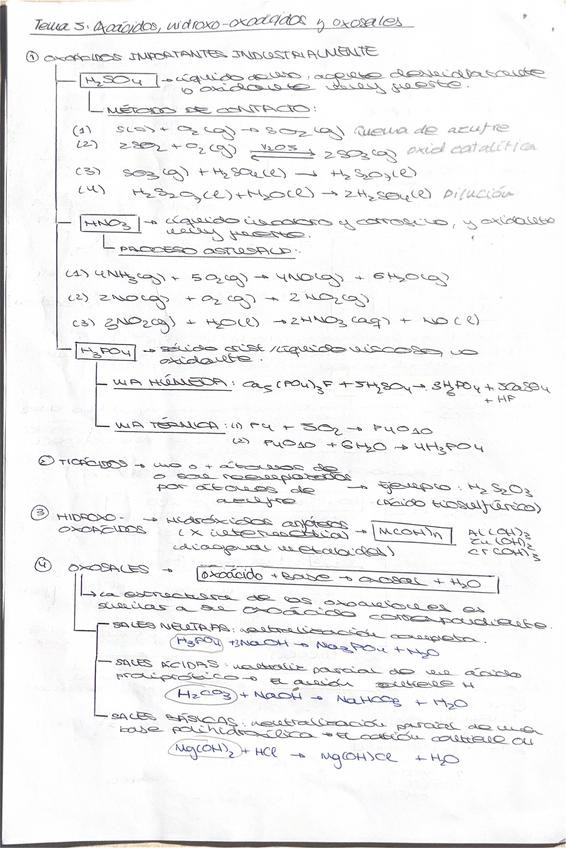 Tema 5: Oxoácidos, hidroxo-oxoácidos y oxosales
① OXOÁCIDOS IMPORTANTES INDUSTRIALMENTE
H2SO4 → Líquido denso, agente deshidratante
o oxidante muy fuerte.
MÉTODO DE CONTACTO:
(1) S(s) + O2(g) → SO2(g) Quema de azufre
(2) 2SO2 + O2(g) V2O5 2SO3(g) oxid catalítica
(3) SO3(g) + H2SO4(l) → H2S2O7(l)
(4) H2S2O7(l) + H2O(l) → 2H2SO4(l) Dilución
HNO3 → Líquido incoloro y corrosivo, y oxidante
muy fuerte.
PROCESO OSTWALD:
(1) 4NH3(g) + 5O2(g) → 4NO(g) + 6H2O(g)
(2) 2NO(g) + O2(g) → 2NO2(g)
(3) 3NO2(g) + H2O(l) → 2HNO3(aq) + NO(l)
H3PO4 → sólido crist/líquido viscoso, no
oxidante.
VÍA HÚMEDA: Ca5(PO4)3F + 5H2SO4 → 3H3PO4 + 5CaSO4
+ HF
VÍA TÉRMICA: (1) P4 + 5O2 → P4O10
(2) P4O10 + 6H2O → 4H3PO4
② TIOÁCIDOS → uno o + átomos de
O son reemplazados → Ejemplo: H2S2O3
por átomos de (Ácido tiosulfúrico)
azufre
③ HIDROXO- → Hidróxidos anfóteros → M(OH)n Al(OH)3
OXOÁCIDOS (X intermedia) Zn(OH)2
(diagonal metaloides) Cr(OH)3
④ OXOSALES → oxoácido + Base → oxosal + H2O
La estructura de los oxoaniones es
similar a su oxoácido correspondiente.
SALES NEUTRAS: neutralización completa.
H3PO4 + 3NaOH → Na3PO4 + H2O
SALES ÁCIDAS: neutraliz parcial de un ácido
poliprótico → El anión contiene H
H2CO3 + NaOH → NaHCO3 + H2O
SALES BÁSICAS: neutralización parcial de una
base polihidroxílica → El catión contiene OH
Mg(OH)2 + HCl → Mg(OH)Cl + H2O